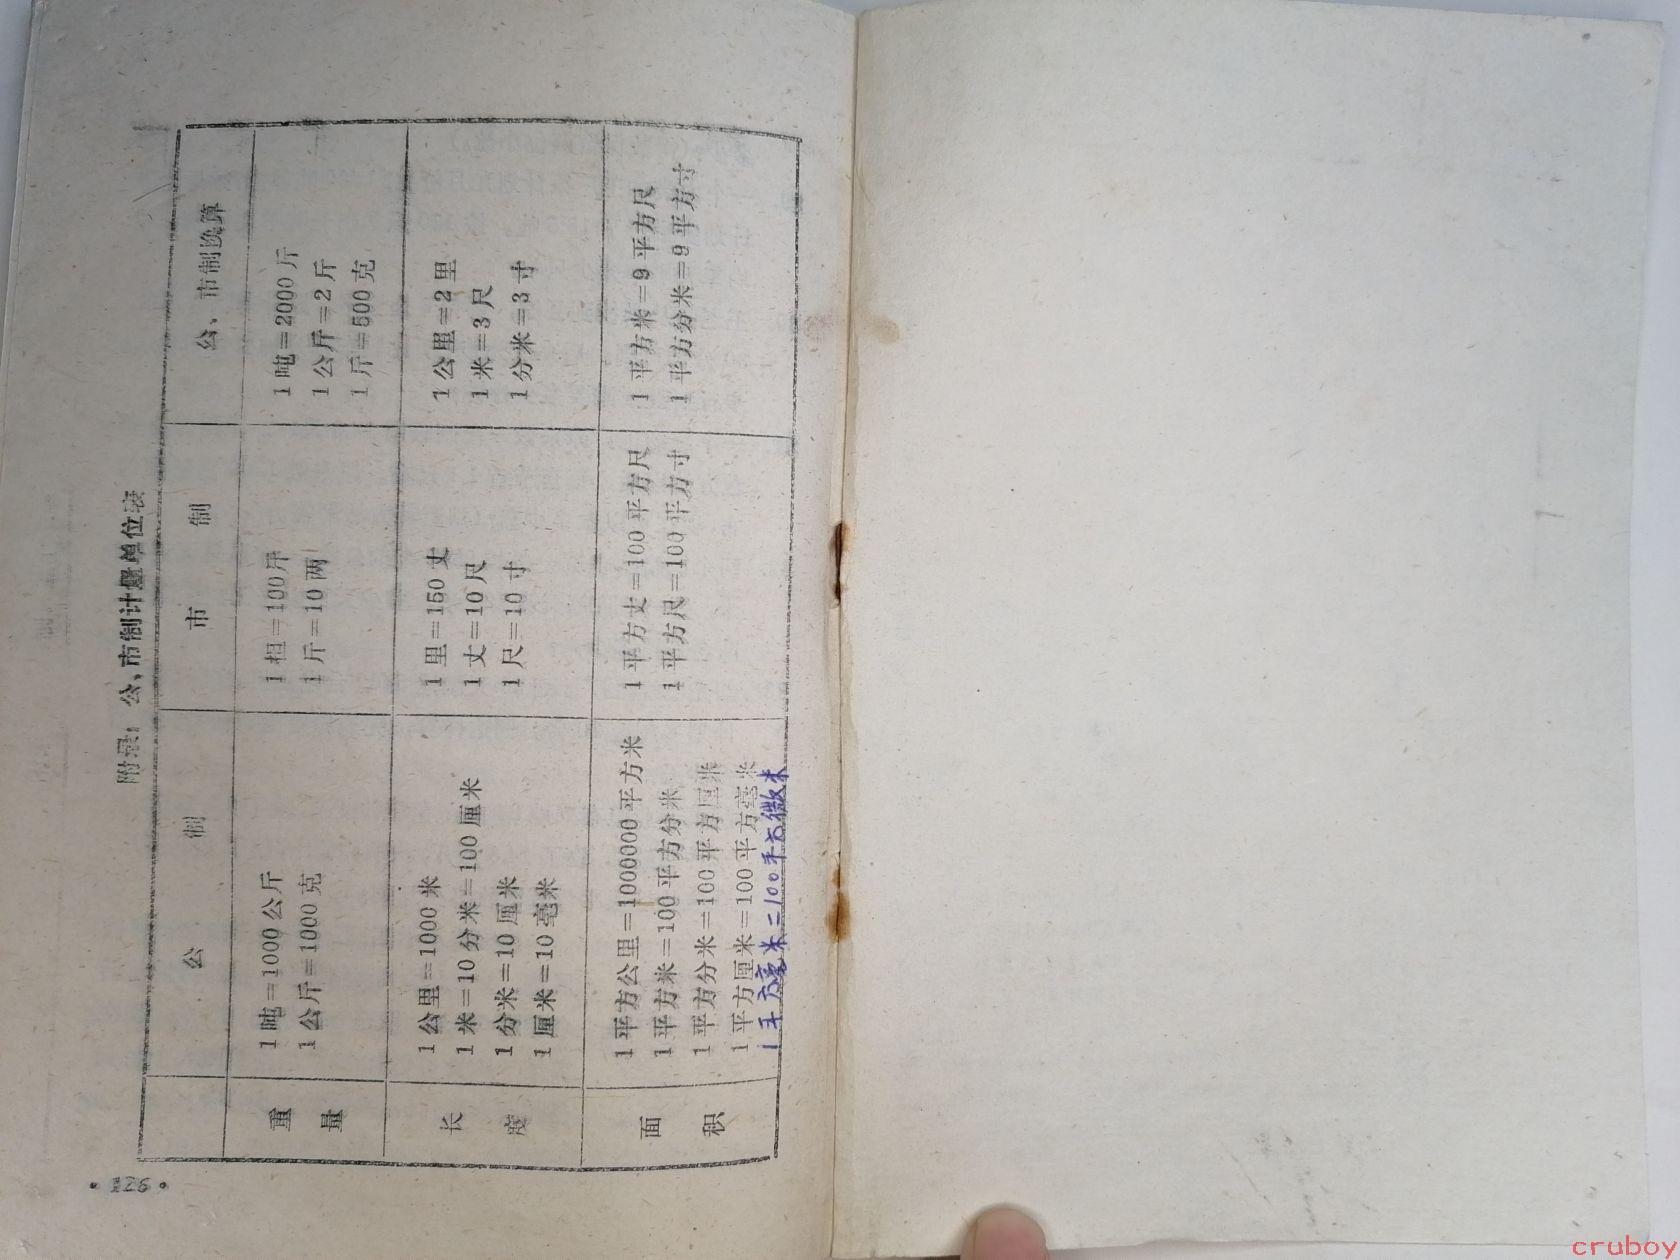 附录：公、市制计量单位表
公 制
市 制
公、市制换算
重量
1吨=1000公斤
1公斤=1000克
1担=100斤
1斤=10两
1吨=2000斤
1公斤=2斤
1斤=500克
长度
1公里=1000米
1米=10分米=100厘米
1分米=10厘米
1厘米=10毫米
1里=150丈
1丈=10尺
1尺=10寸
1公里=2里
1米=3尺
1分米=3寸
面积
1平方公里=1000000平方米
1平方米=100平方分米
1平方分米=100平方厘米
1平方厘米=100平方毫米
1平方毫米=100平方微米
1平方丈=100平方尺
1平方尺=100平方寸
1平方米=9平方尺
1平方分米=9平方寸
• 126 •
cruboy